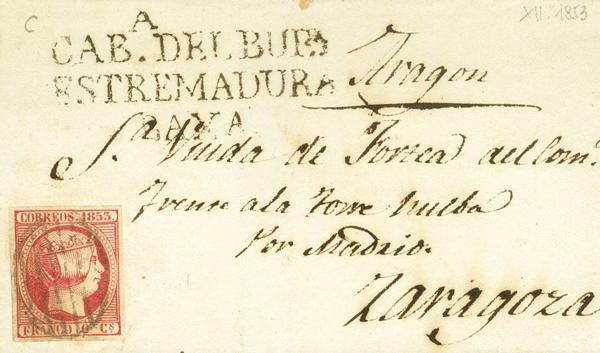 C
XII. 1853
A
CAB. DEL BUEY
ESTREMADURA
BAXA
Aragon
S.ª Viuda de Fortea del Com.º
Frente a la Torre nueba
Por Madrid.
Zaragoza
CORREOS. 1853.
FRANCO 6 C.ˢ